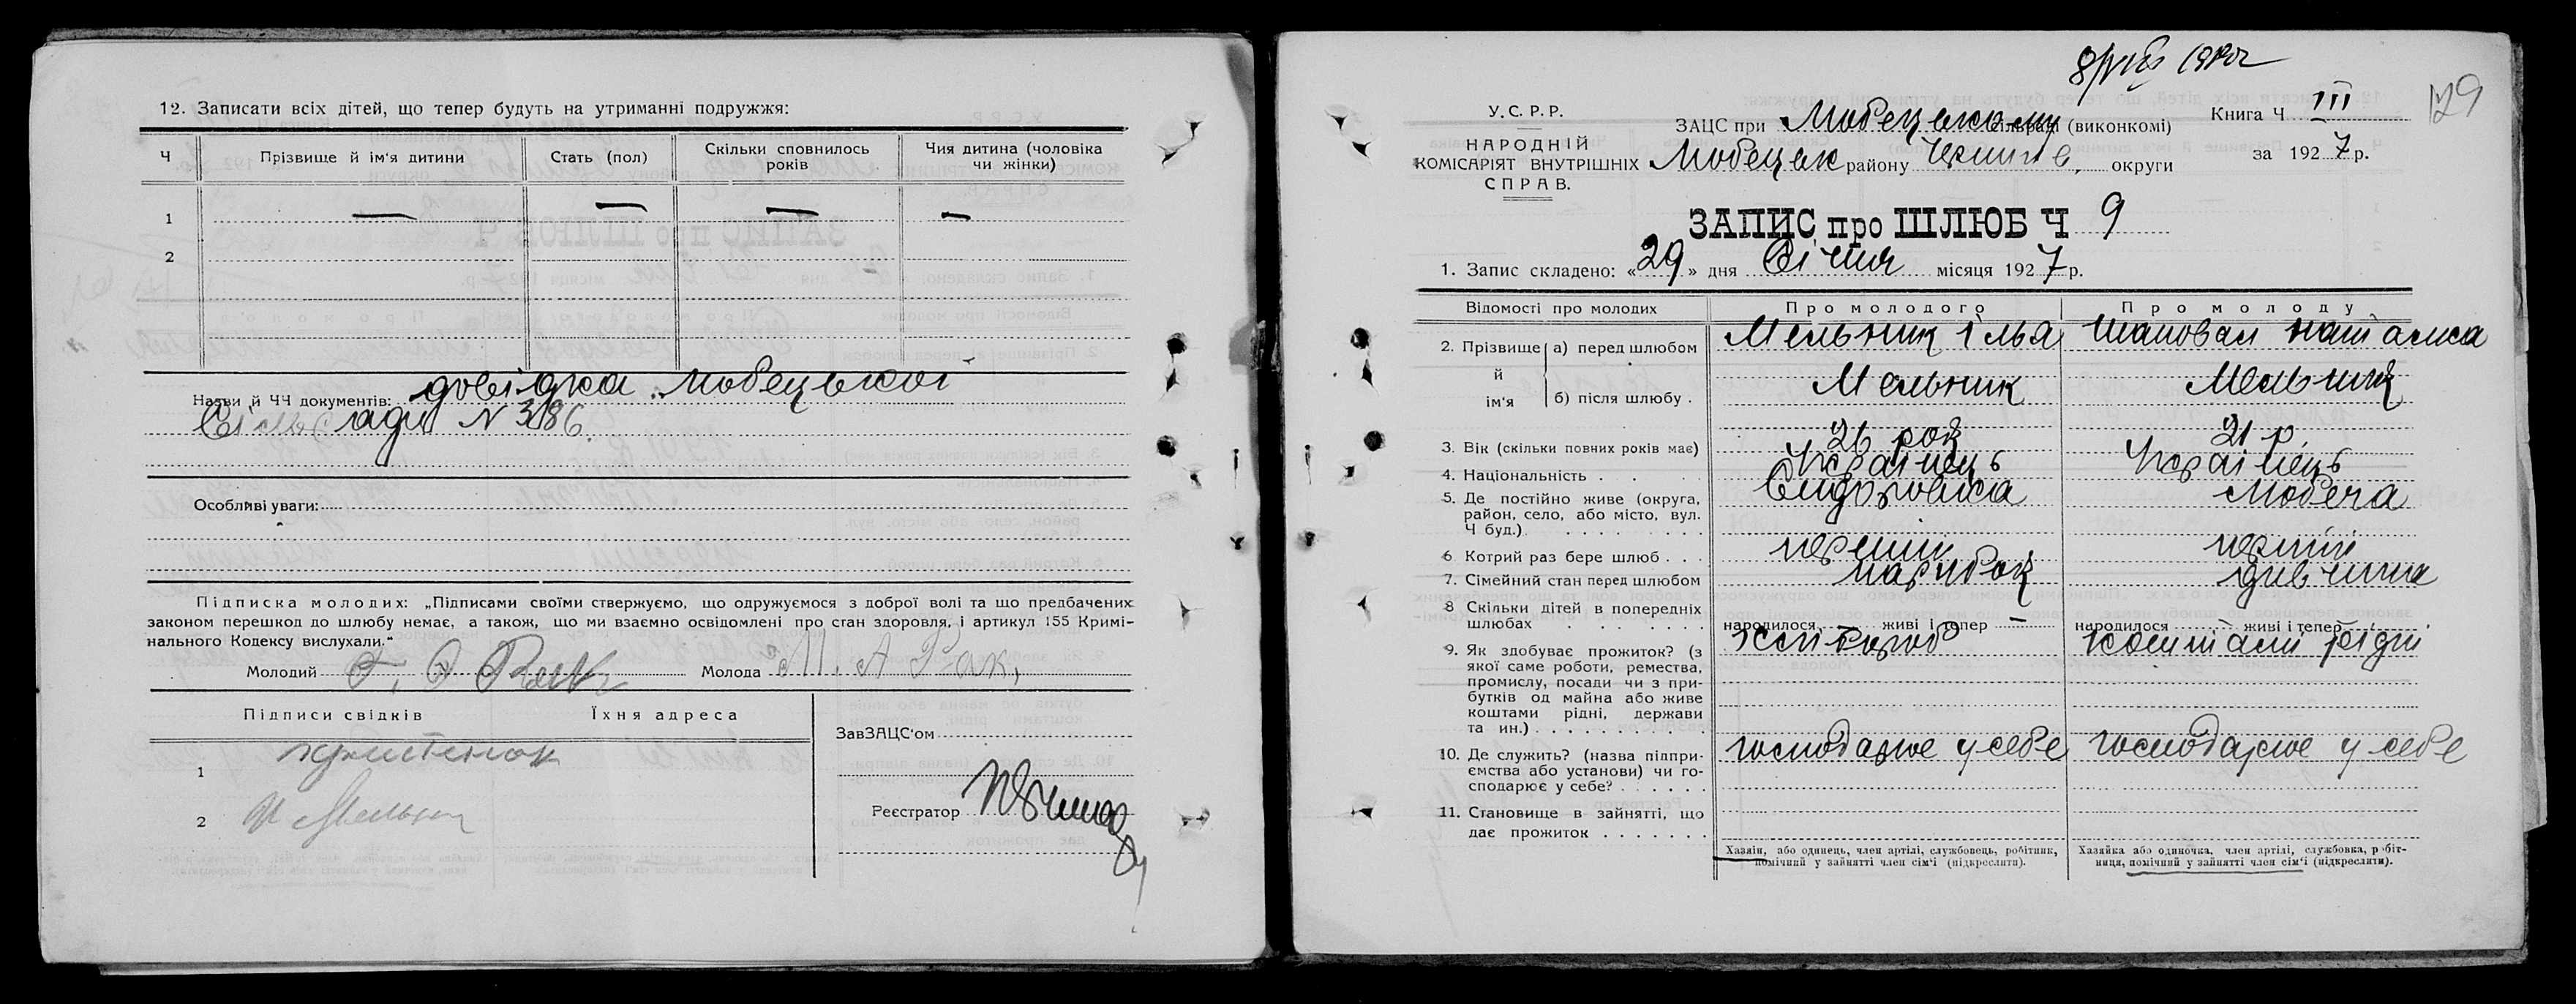 12. Записати всіх дітей, що тепер будуть на утриманні подружжя:
Ч
Прізвище й ім'я дитини
Стать (пол)
Скільки сповнилось років
Чия дитина (чоловіка чи жінки)
1 — — — —
2
Назви й ЧЧ документів: довідка Любецької
Сільради N 386.
Особливі уваги:
Підписка молодих: „Підписами своїми ствержуємо, що одружуємося з доброї волі та що предбачених
законом перешкод до шлюбу немає, а також, що ми взаємно освідомлені про стан здоровля, і артикул 155 Кримі-
нального Кодексу вислухали."
Молодий
Молода М. А Рак,
Підписи свідків
Їхня адреса
1
2 Мельник
ЗавЗАЦС'ом
Реєстратор
129
У. С. Р. Р.
НАРОДНІЙ
КОМІСАРІЯТ ВНУТРІШНІХ
СПРАВ.
ЗАЦС при Любецькому сільраді (виконкомі)
Любецьк району Черниг в. округи
Книга Ч III
за 1927 р.
ЗАПИС про ШЛЮБ Ч 9
1. Запис складено: «29» дня Січня місяця 1927 р.
Відомості про молодих
Про молодого
Про молоду
2. Прізвище й ім'я
а) перед шлюбом
Мельник Ілья
Шаповал Наталиа
б) після шлюбу .
Мельник
Мельник
3. Вік (скільки повних років має)
26 рок
21 р.
4. Національність . . .
Українець
Українець
5. Де постійно живе (округа, район, село, або місто, вул. Ч буд.)
Любеча
6 Котрий раз бере шлюб . . .
перший
перший
7. Сімейний стан перед шлюбом
парубок
дивчина
8 Скільки дітей в попередніх шлюбах
народилося — живі і тепер —
народилося живі і тепер
9. Як здобуває прожиток? (з якої саме роботи, ремества, промислу, посади чи з прибутків од майна або живе коштами рідні, держави та ин.)
хлібороб
коштами рідні
10. Де служить? (назва підприємства або установи) чи господарює у себе?
господарює у себе
господарює у себе
11. Становище в зайнятті, що дає прожиток
Хазяїн, або одинець, член артілі, службовець, робітник, помічний у зайнятті член сім'ї (підкреслити).
Хазяйка або одиночка, член артілі, службовка, робітниця, помічний у зайнятті член сім'ї (підкреслити).